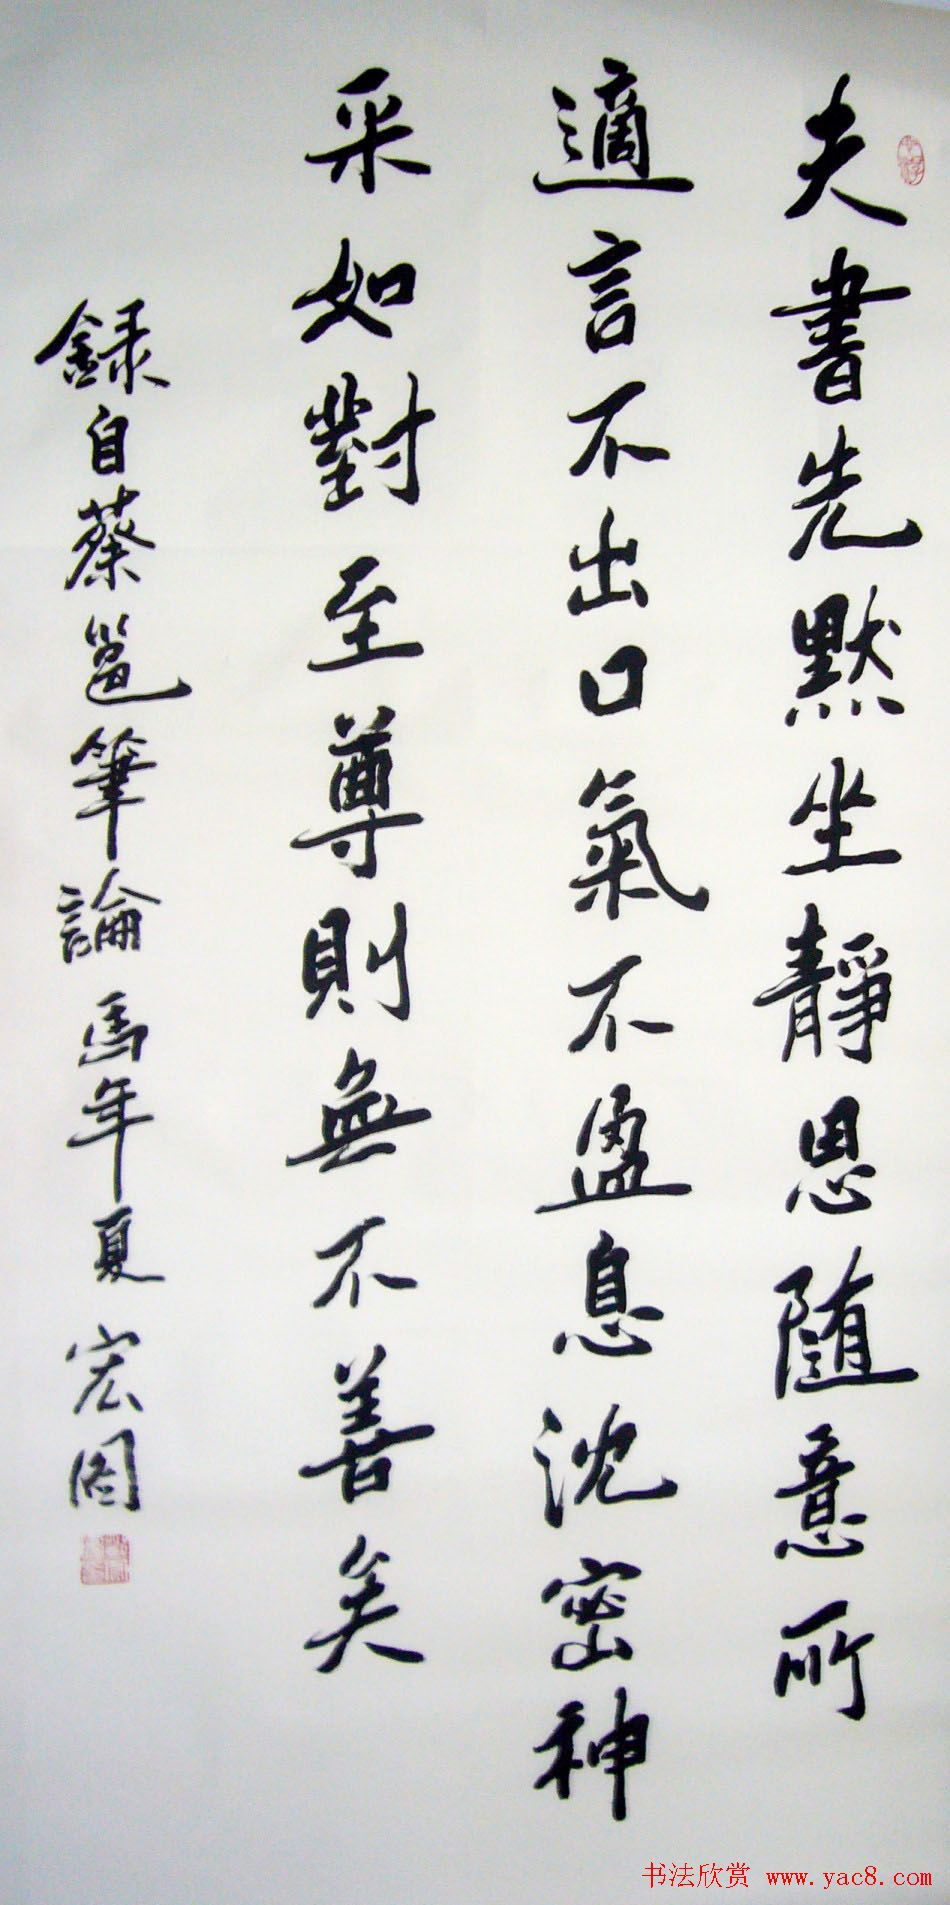 夫書先默坐靜思随意所
適言不出口氣不盈息沈密神
采如對至尊則無不善矣
録自蔡邕筆論馬年夏宏图
书法欣赏 www.yac8.com